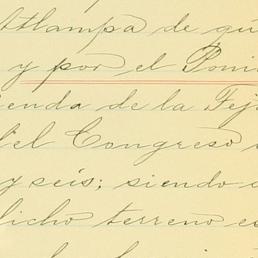 Atlampa de qu
y por el Poni
ienda de la Teja
del Congreso
y seis; siendo
dicho terreno es